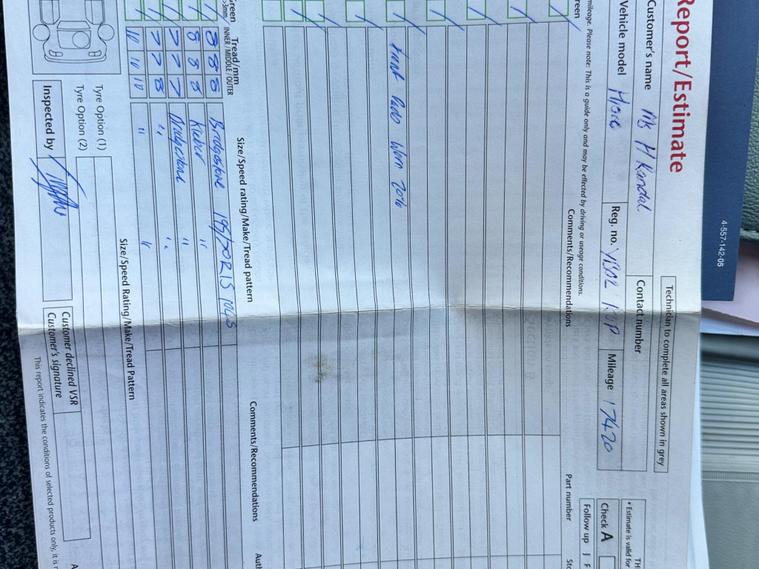 Report/Estimate
Technician to complete all areas shown in grey
Customer's name Ms M Randal
Contact number
Vehicle model Micra
Reg. no.
Mileage 17420
Check A
mileage. Please note: This is a guide only and may be effected by driving or useage conditions.
Follow up
reen
Comments/Recommendations
Part number
Front Pads Worn 20%
Green
Tread/mm
INNER/MIDDLE/OUTER
Size/Speed rating/Make/Tread pattern
Comments/Recommendations
8 8 8 Bridgestone 195/50R15
8 8 8 Kleber "
7 7 7 Bridgestone "
7 7 8 " "
10 10 10 " "
Size/Speed Rating/Make/Tread Pattern
Tyre Option (1)
Tyre Option (2)
Inspected by
Customer declined VSR
Customer's signature
This report indicates the conditions of selected products only, it is
4-557-142-08